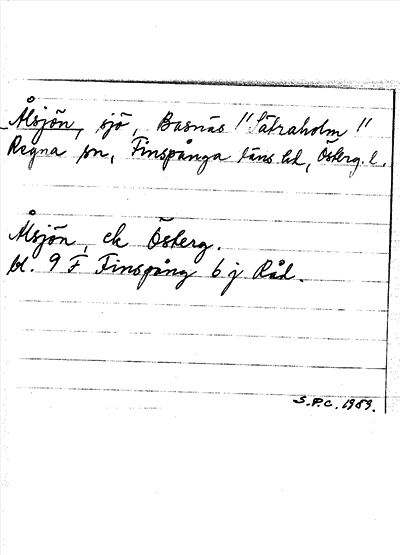 Ålsjön, sjö, Basnäs "Sätraholm"
Regna sn, Finspånga läns hd, Österg. l.
Ålsjön, ek Österg.
bl. 9 F Finspång 6 j Råd.
S.P.C. 1989.